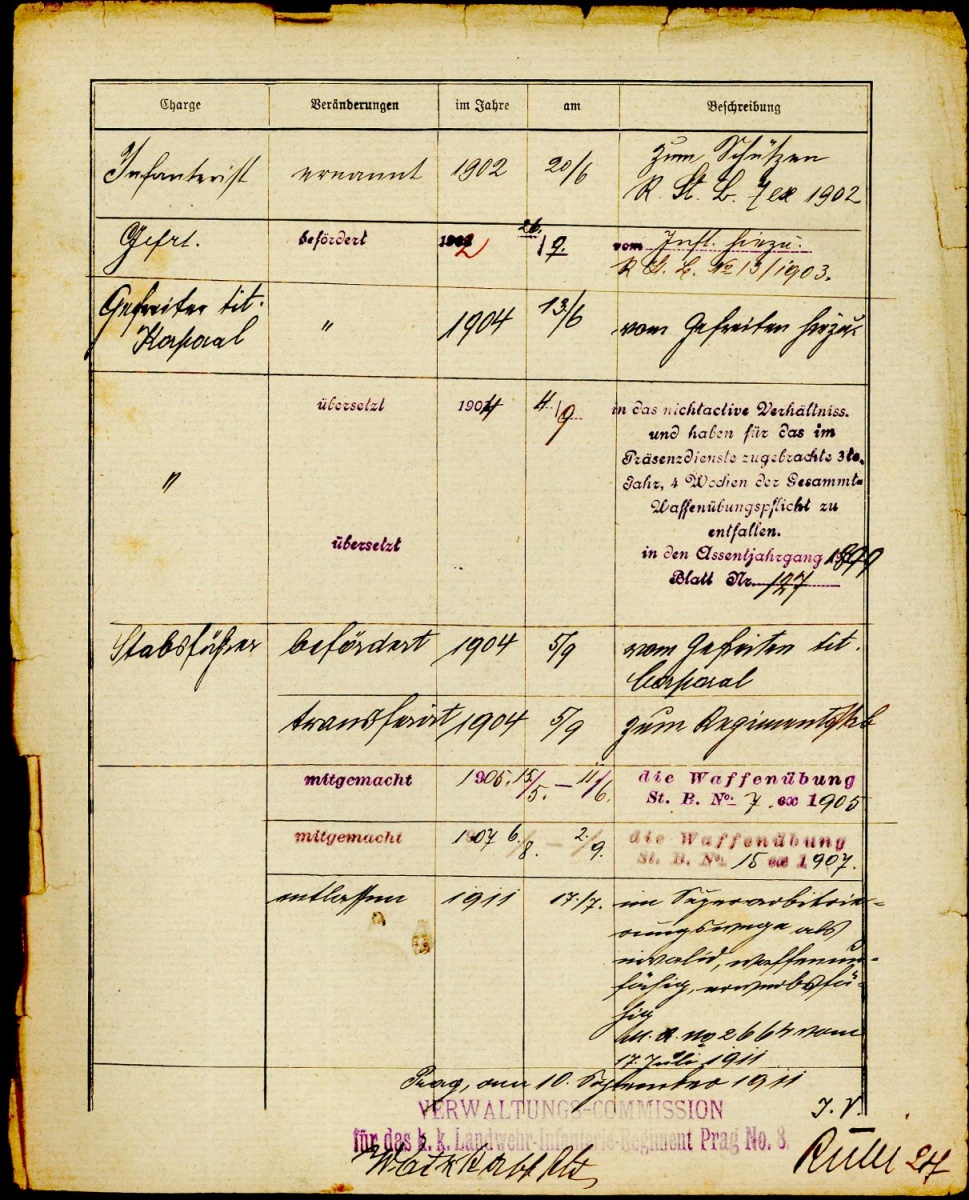 Charge Veränderungen im Jahre am Beschreibung
Infanterist ernannt 1902 20/6 zum Schützen
R. St. B. 7 ex 1902
Gefrt. befördert 1902 26./9. vom Inft. hiezu.
R. St. B. No 13/1903.
Gefreiter tit. Korporal " 1904 13/6 vom Gefreiten hiezu.
" übersetzt 1904 4./9 in das nichtactive Verhältniss.
und haben für das im
Präsenzdienste zugebrachte 3te.
Jahr, 4 Wochen der Gesammt-
Waffenübungspflicht zu
entfallen.
übersetzt in den Assentjahrgang 1899
Blatt Nr. 127
Stabsführer befördert 1904 5/9 vom Gefreiten tit.
Corporal
transferirt 1904 5/9 zum Regimentsstab
mitgemacht 1905. 15/5. – 11/6. die Waffenübung
St. B. No. 7 ex 1905
mitgemacht 1907 6./8. – 2./9. die Waffenübung
St. B. No. 15 ex 1907.
entlassen 1911 17./7. im Superarbitrie-
rungswege als
invalid, waffenun-
fähig, erwerbsfä-
hig
M. A. No 2664 vom
17. Juli 1911
Prag, am 10. September 1911
VERWALTUNGS-COMMISSION
für das k. k. Landwehr-Infanterie-Regiment Prag No. 8.
I. V.